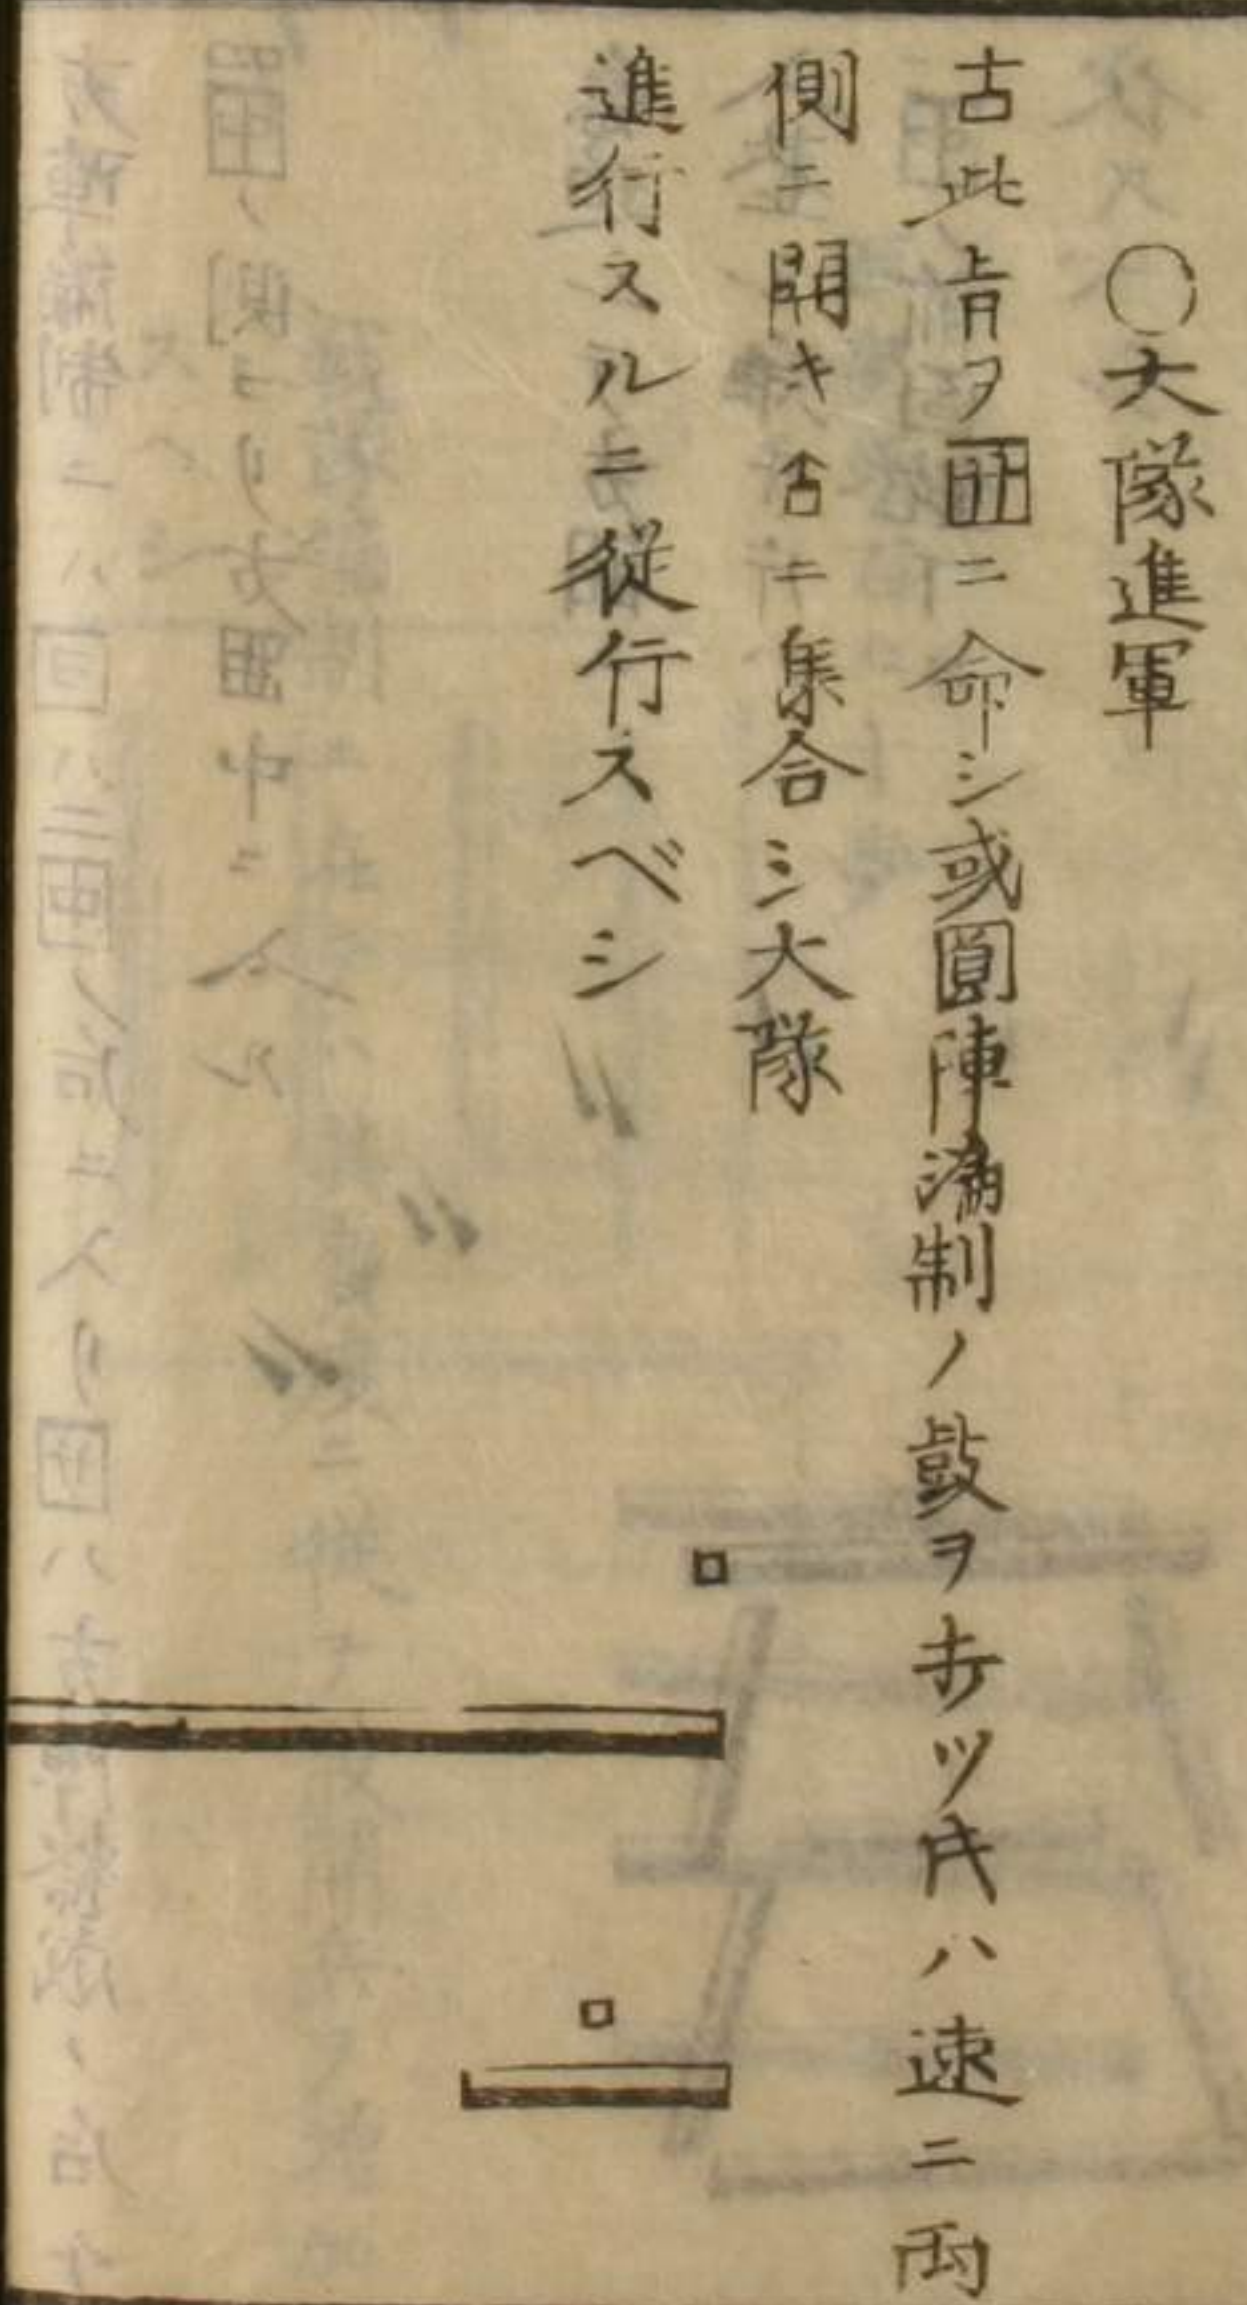 ○大隊進軍
古此旨ヲ囲ニ命シ或圓陣備制ノ鼓ヲ打ツ時ハ速ニ両
側ニ開キ舎ニ集合シ大隊
進行スルニ従行スベシ